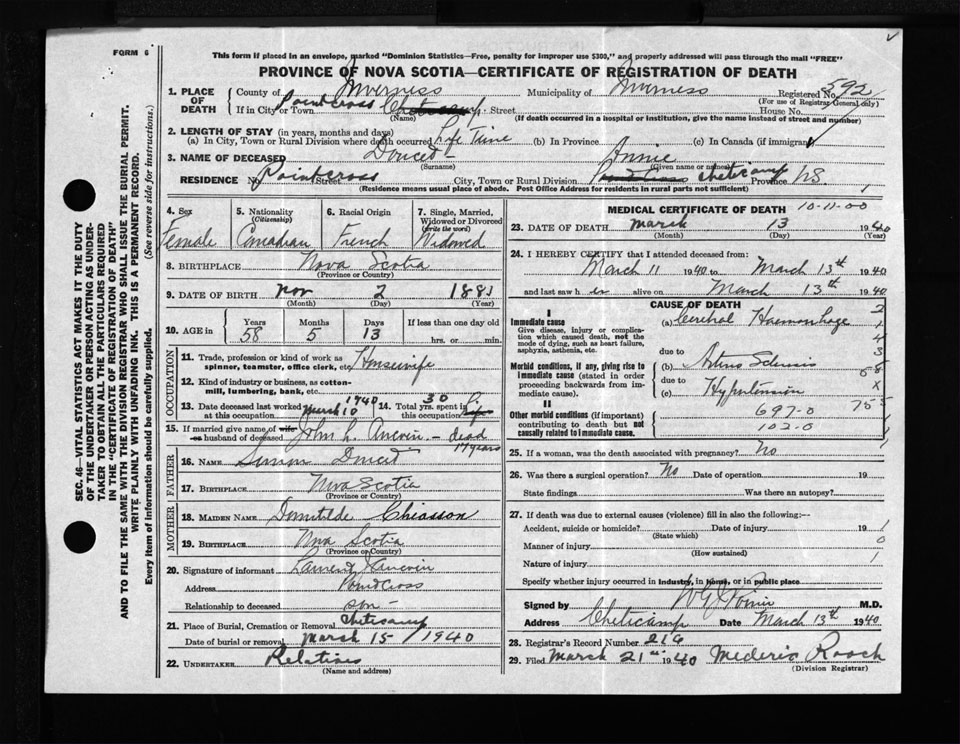 FORM 6
This form if placed in an envelope, marked "Dominion Statistics—Free, penalty for improper use $300," and properly addressed will pass through the mail "FREE"
PROVINCE OF NOVA SCOTIA—CERTIFICATE OF REGISTRATION OF DEATH
SEC. 46—VITAL STATISTICS ACT MAKES IT THE DUTY
OF THE UNDERTAKER OR PERSON ACTING AS UNDER-
TAKER TO OBTAIN ALL THE PARTICULARS REQUIRED
IN THE "CERTIFICATE OF REGISTRATION OF DEATH"
AND TO FILE THE SAME WITH THE DIVISION REGISTRAR WHO SHALL ISSUE THE BURIAL PERMIT.
WRITE PLAINLY WITH UNFADING INK. THIS IS A PERMANENT RECORD.
Every item of information should be carefully supplied. (See reverse side for instructions.)
1. PLACE OF DEATH County of Inverness Municipality of Inverness Registered No. 592
(For use of Registrar General only)
If in City or Town Pointcross Cheticamp Street House No.
(Name) (If death occurred in a hospital or institution, give the name instead of street and number)
2. LENGTH OF STAY (in years, months and days)
(a) In City, Town or Rural Division where death occurred Life Time (b) In Province (c) In Canada (if immigrant)
3. NAME OF DECEASED Doucet Annie
(Surname) (Given name or names)
RESIDENCE No. Pointcross Street City, Town or Rural Division Cheticamp Province N.S.
(Residence means usual place of abode. Post Office Address for residents in rural parts not sufficient) 1
4. Sex Female
5. Nationality (Citizenship) Canadian
6. Racial Origin French
7. Single, Married, Widowed or Divorced (write the word) Widowed
8. BIRTHPLACE Nova Scotia
(Province or Country)
9. DATE OF BIRTH Nov 2 1883
(Month) (Day) (Year)
10. AGE in Years 58 Months 5 Days 13 If less than one day old hrs. or min.
OCCUPATION
11. Trade, profession or kind of work as spinner, teamster, office clerk, etc. Housewife
12. Kind of industry or business, as cotton-mill, lumbering, bank, etc.
13. Date deceased last worked at this occupation March 10 1940 14. Total yrs. spent in this occupation 30
15. If married give name of wife or husband of deceased John L. Ancoin - dead 17 years
FATHER
16. NAME Simon Doucet
17. BIRTHPLACE Nova Scotia
(Province or Country)
MOTHER
18. MAIDEN NAME Domitilde Chiasson
19. BIRTHPLACE Nova Scotia
(Province or Country)
20. Signature of informant
Address Point Cross
Relationship to deceased son
21. Place of Burial, Cremation or Removal Cheticamp
Date of burial or removal March 15 1940
22. UNDERTAKER Relatives
(Name and address)
MEDICAL CERTIFICATE OF DEATH 10-11-00
23. DATE OF DEATH March 13 1940
(Month) (Day) (Year)
24. I HEREBY CERTIFY that I attended deceased from:
March 11 1940 to March 13th 1940
and last saw her alive on March 13th 1940
CAUSE OF DEATH
I
Immediate cause (a) Cerebral Haemorrhage
Give disease, injury or complica-
tion which caused death, not the
mode of dying, such as heart failure,
asphyxia, asthenia, etc.
due to
Morbid conditions, if any, giving rise to (b) Arterio Sclerosis
immediate cause (stated in order
proceeding backwards from im-
mediate cause).
due to
(c) Hypertension
II
Other morbid conditions (if important)
contributing to death but not
causally related to immediate cause.
697-0
102.0
25. If a woman, was the death associated with pregnancy? No
26. Was there a surgical operation? No Date of operation 19
State findings Was there an autopsy?
27. If death was due to external causes (violence) fill in also the following:—
Accident, suicide or homicide? Date of injury 19
(State which)
Manner of injury
(How sustained)
Nature of injury
Specify whether injury occurred in industry, in home, or in public place
Signed by M.D.
Address Cheticamp Date March 13th 1940
28. Registrar's Record Number 216
29. Filed March 21st 1940 Mederic Roach
(Division Registrar)